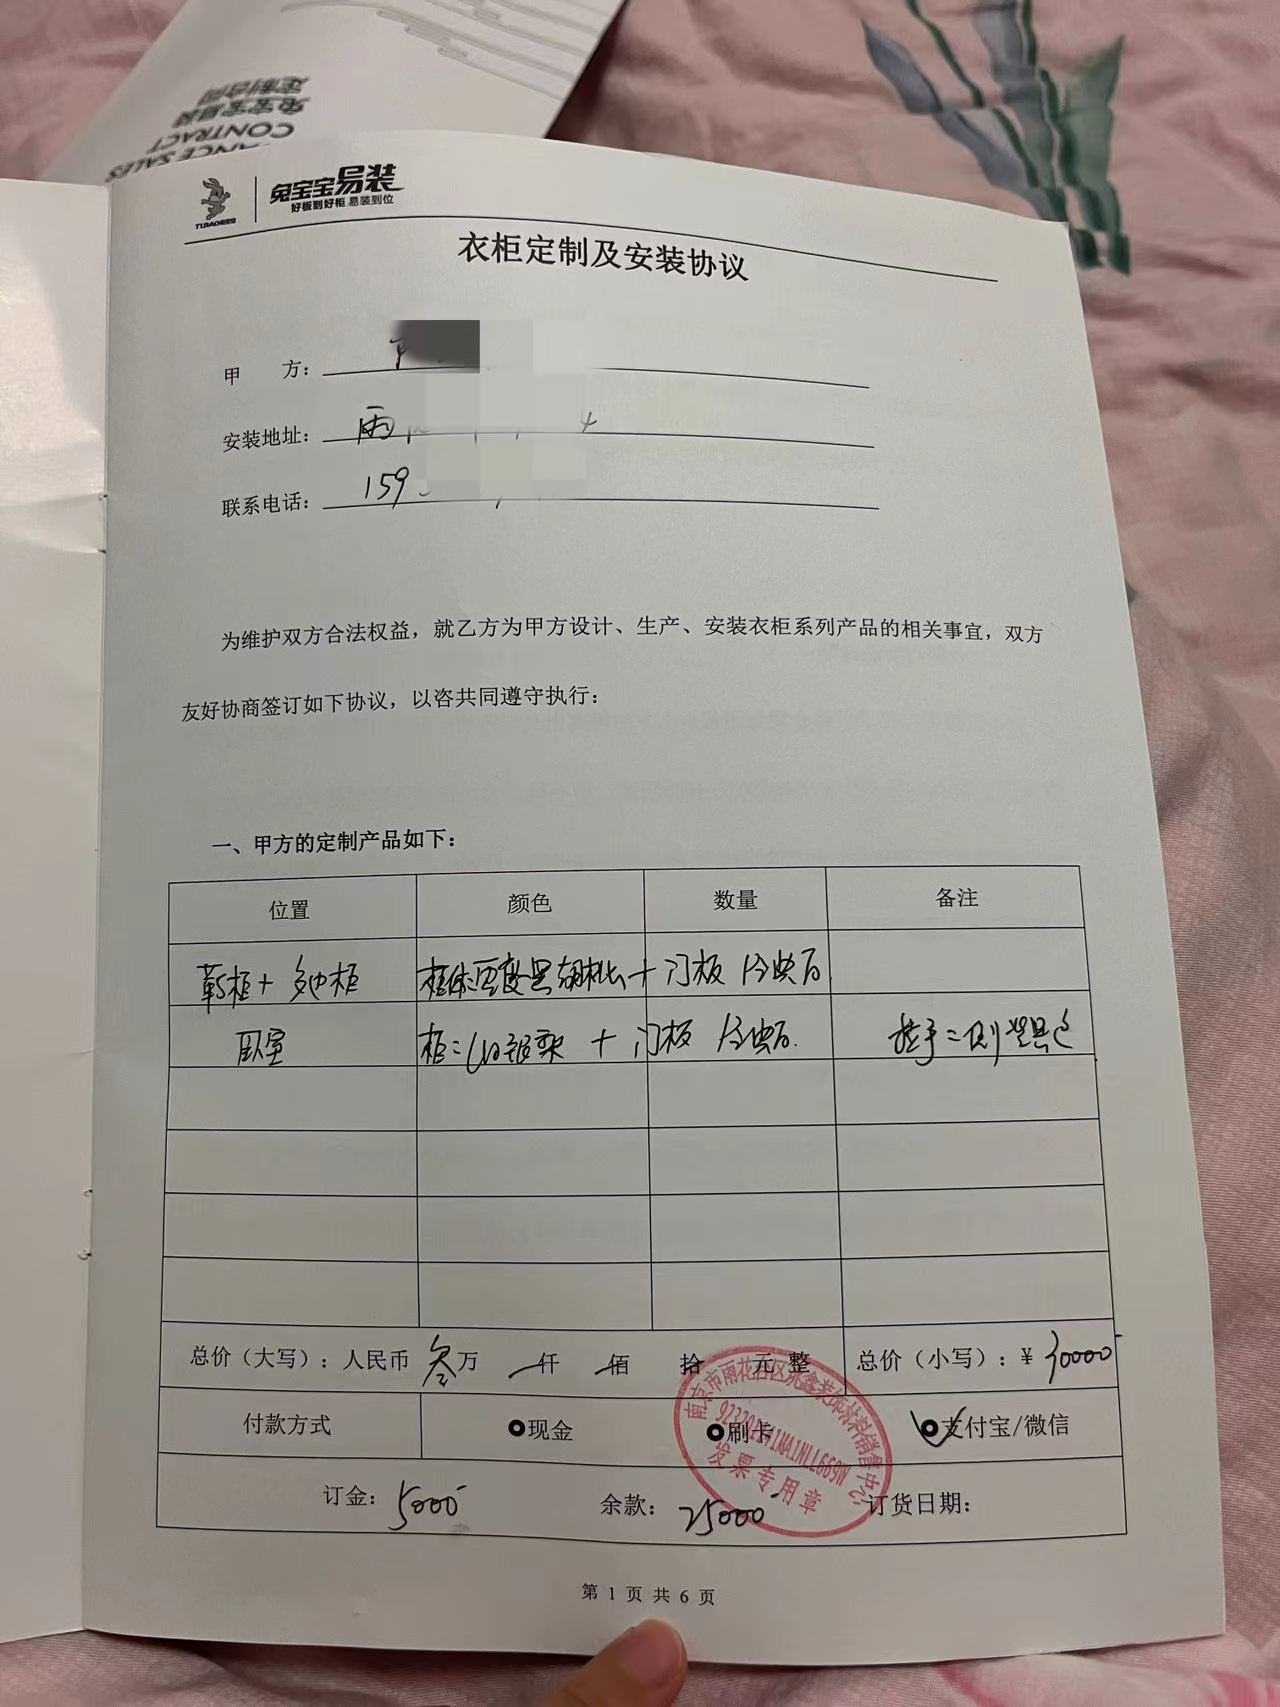 定制合同
兔宝宝易装
CONTRACT
ANCE SALES
TUBAOBAO
兔宝宝易装
好板到好柜 易装到位
衣柜定制及安装协议
甲 方：
安装地址：雨
联系电话：159
为维护双方合法权益，就乙方为甲方设计、生产、安装衣柜系列产品的相关事宜，双方
友好协商签订如下协议，以咨共同遵守执行：
一、甲方的定制产品如下：
位置 颜色 数量 备注
鞋柜+ 柜 柜体 黑胡桃+门板
卧室 柜： + 门板 拉手：侧 黑色
总价（大写）：人民币 叁万 仟 佰 拾 元 整 总价（小写）：¥ 30000
付款方式 现金 刷卡 支付宝/微信
南京市雨花台区 鑫装饰材料销售中心
发票专用章
订金：5000 余款：25000 订货日期：
第 1 页 共 6 页